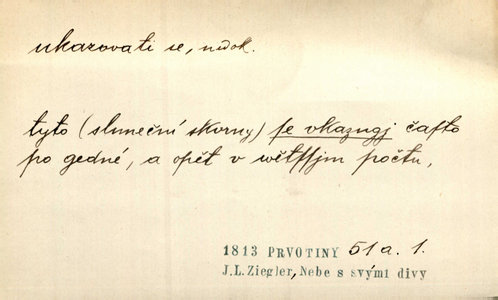 ukazovati se, nedok.
tyto (sluneční skvrny) ſe vkazugj čaſto
po gedné, a opět v wětſſjm počtu,
1813 PRVOTINY 51a. 1.
J.L. Ziegler, Nebe s svými divy